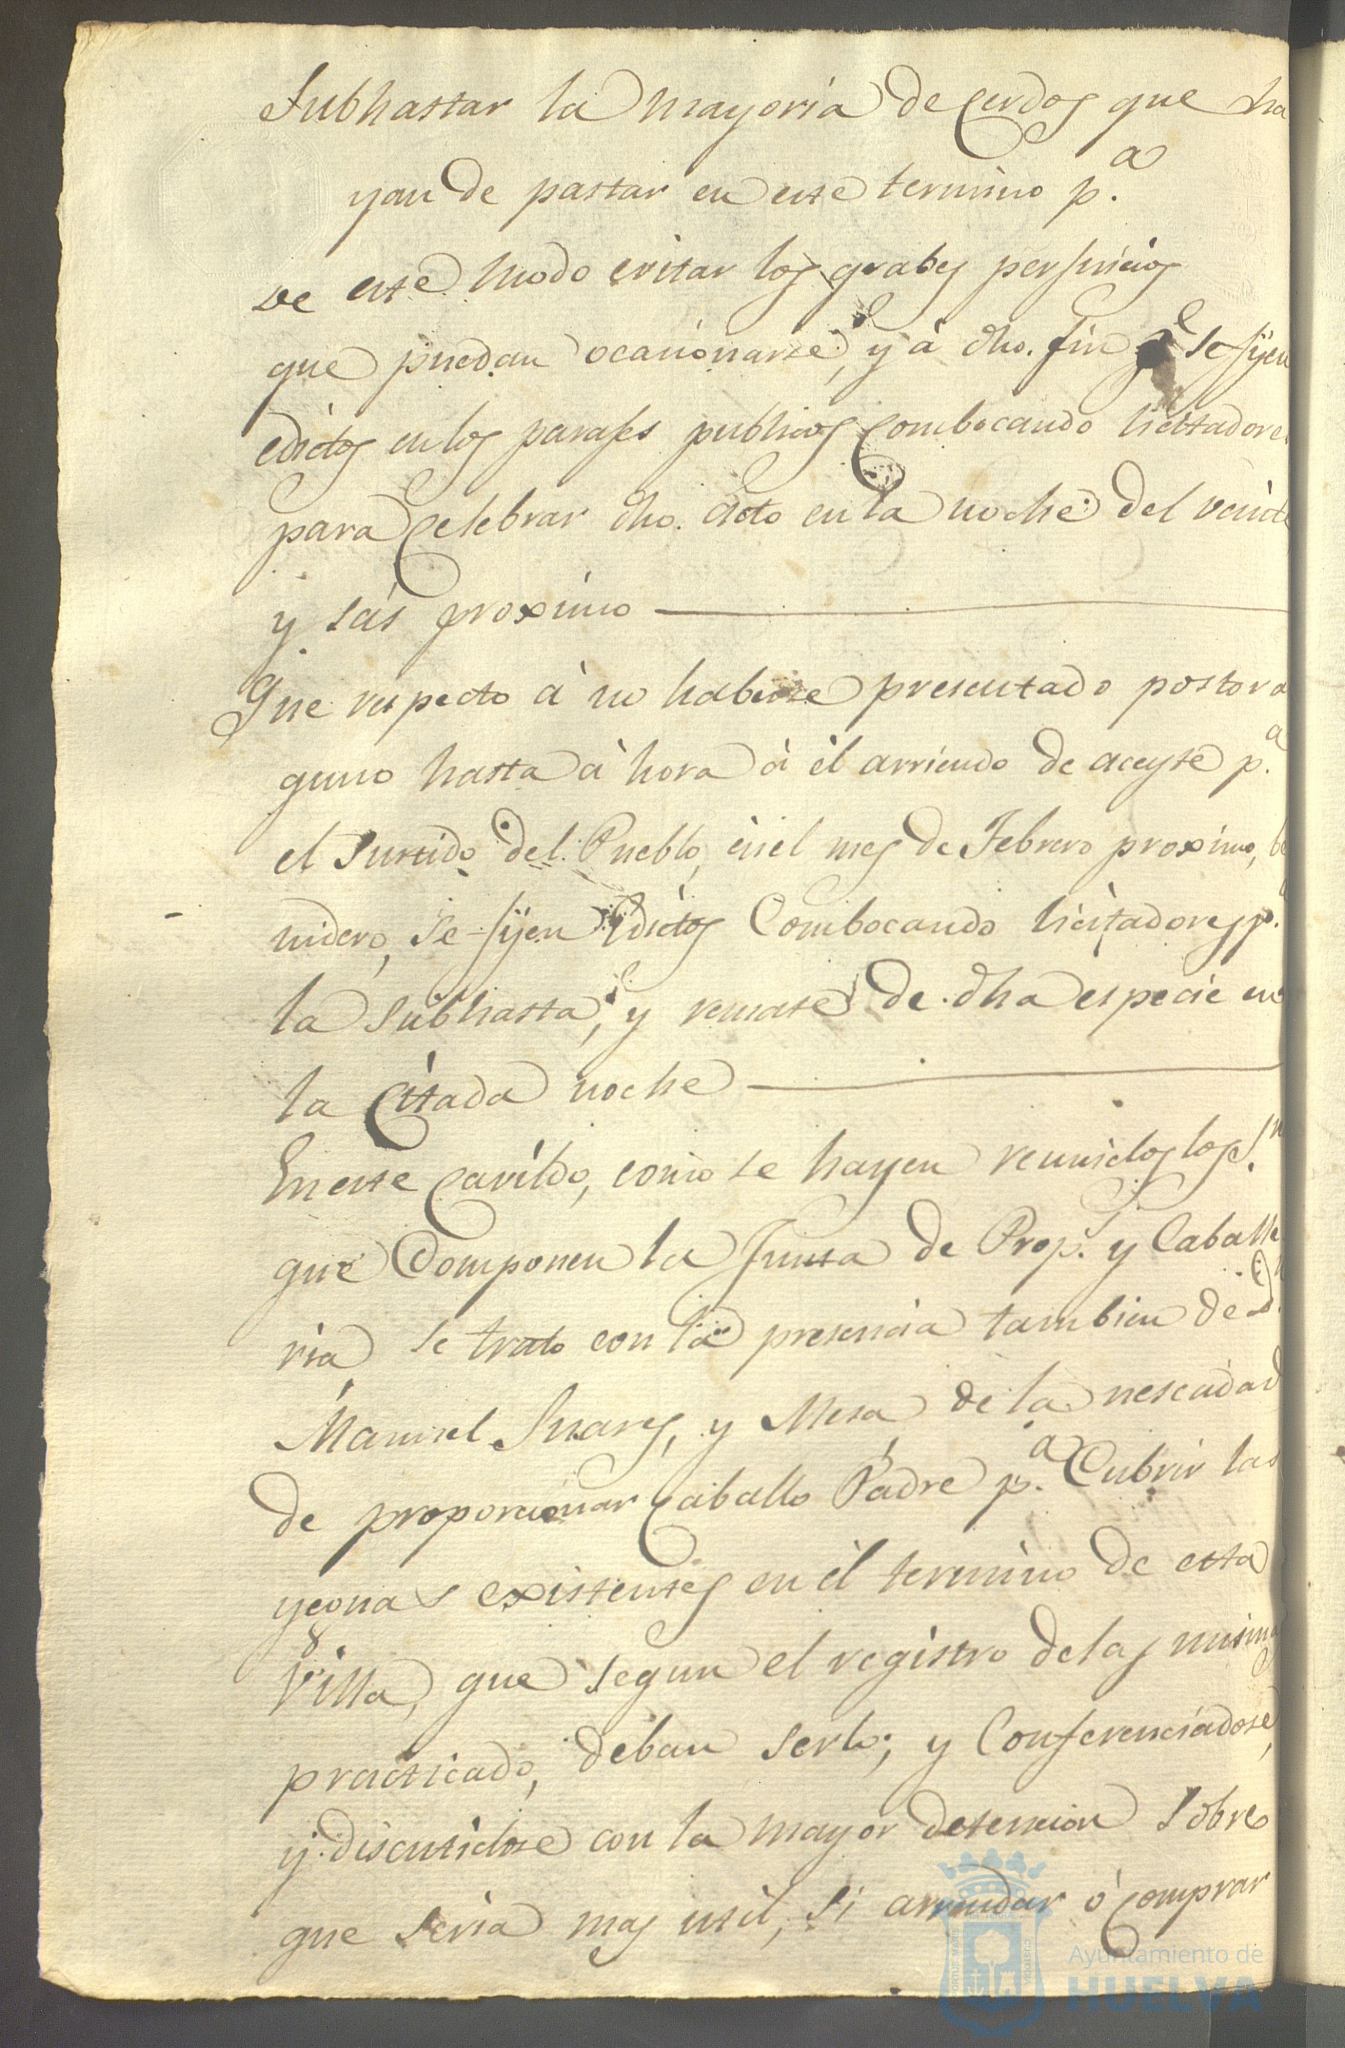 Subhastar la mayoria de Cerdos que ha
yan de pastar en este termino p.ª
de este modo evitar los grabes perjuicios
que puedan ocacionarse, y á dho. fin se fijen
edictos en los parajes publicos Combocando licitadores
para Celebrar dho. Acto en la noche del veinte
y sás proximo
Que respecto á no haberse presentado postor al
guno hasta á hora á él arriendo de aceyte p.ª
el Surtido del Pueblo, en el mes de Febrero proximo, be
nidero, se fijen Edictos Combocando licitadores p.ª
la Subhasta, y remate de dha especie en
la Citada noche
En este Cavildo, como se hayen reunidos los S.res
que Componen la Junta de Prop.s y Caballe
ria se trato con la presencia tambien de D.n
Manuel Suares, y Mesa, de la nescadad
de proporcionar Caballo Padre p.ª Cubrir las
yeguas existentes en él termino de esta
Villa, que segun el registro de las mismas
practicado, deban serlo; y Conferenciadose,
y discutidose con la mayor detencion Sobre
que seria mas util, si arrendar ó Comprar
Ayuntamiento de
HUELVA